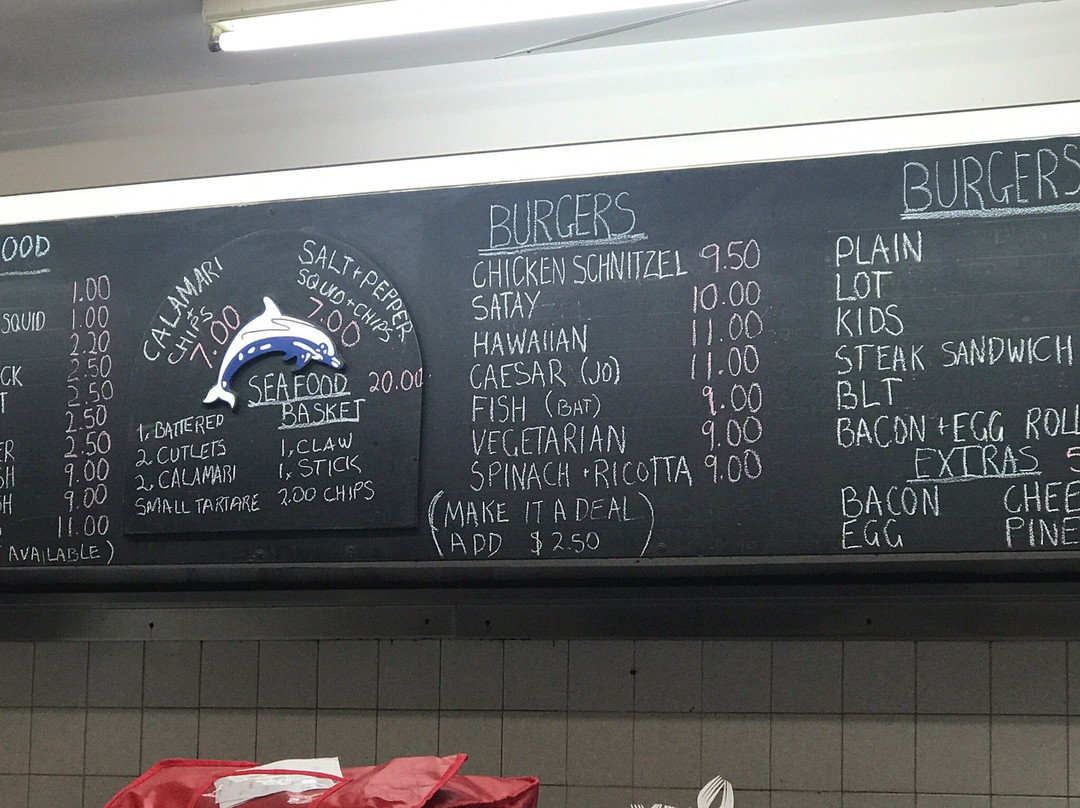 OOD
1.00
SQUID 1.00
2.20
CK 2.50
T 2.50
2.50
ER 2.50
SH 9.00
SH 9.00
11.00
AVAILABLE)
CALAMARI
+
CHIPS
7.00
SALT+PEPPER
SQUID+CHIPS
7.00
SEAFOOD 20.00
BASKET
1, BATTERED
2, CUTLETS
2, CALAMARI
SMALL TARTARE
1, CLAW
1, STICK
2.00 CHIPS
BURGERS
CHICKEN SCHNITZEL 9.50
SATAY 10.00
HAWAIIAN 11.00
CAESAR (JO) 11.00
FISH (BAT) 9.00
VEGETARIAN 9.00
SPINACH +RICOTTA 9.00
(MAKE IT A DEAL)
(ADD $2.50)
BURGERS
PLAIN
LOT
KIDS
STEAK SANDWICH
BLT
BACON+EGG ROLL
EXTRAS
BACON CHEE
EGG PINE